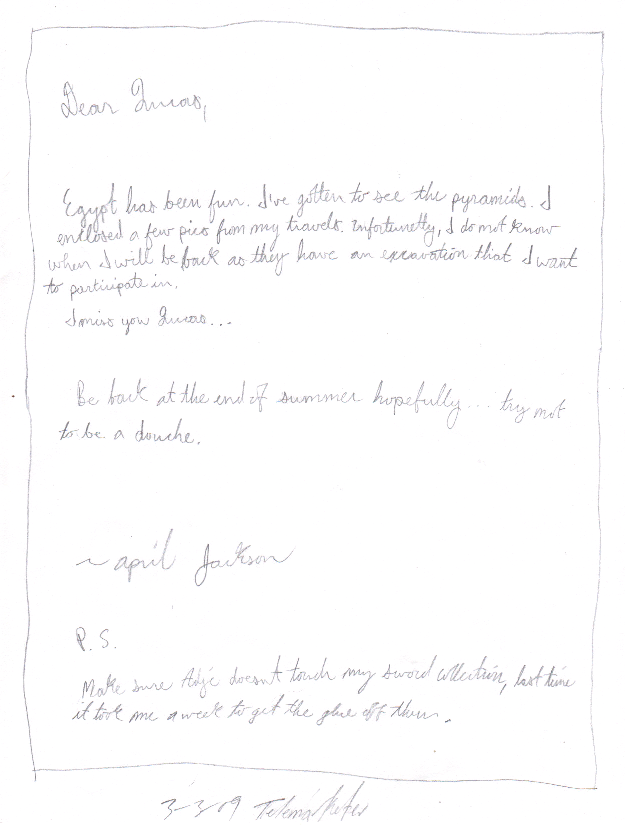 Dear Lucas,
Egypt has been fun. I've gotten to see the pyramids. I
enclosed a few pics from my travels. Unfortunetly, I do not know
when I will be back as they have an excavation that I want
to participate in.
I miss you Lucas...
Be back at the end of summer hopefully... try not
to be a douche.
~ April Jackson
P.S.
Make sure doesn't touch my sword collection, last time
it took me a week to get the glue off them.
3-3-09